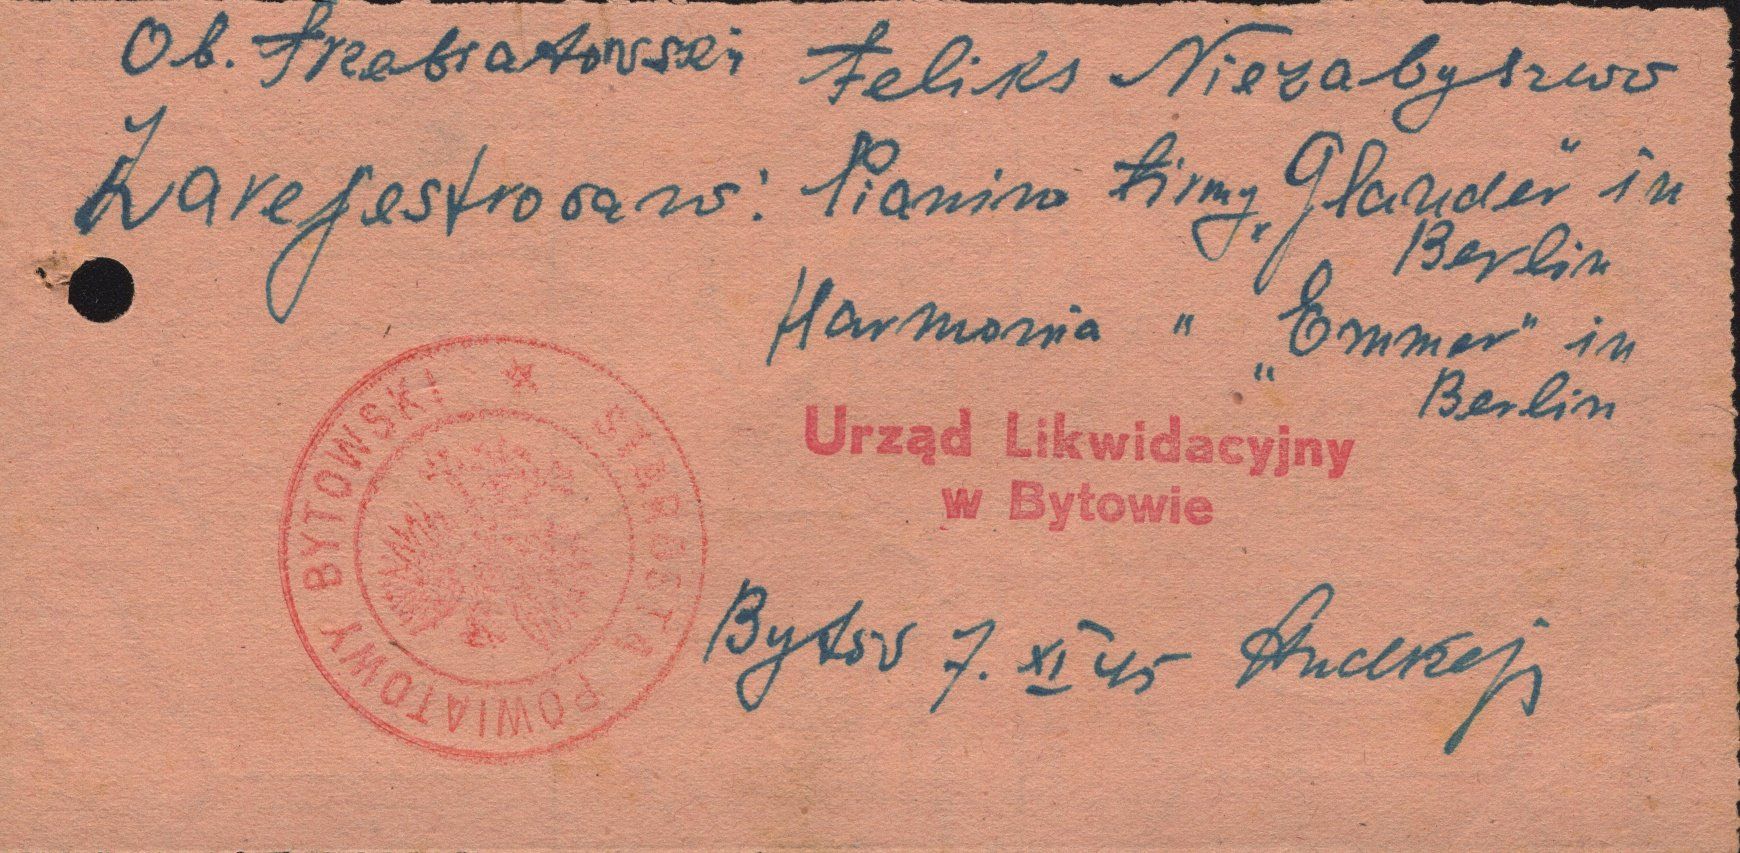 Ob. Trzebiatowski Feliks Niezabyszewo
Zarejestrował: Pianino firmy „Glander" in
Berlin
Harmonia " „Emmer" in
Berlin
STAROSTA POWIATOWY BYTOWSKI
Urząd Likwidacyjny
w Bytowie
Bytów 7. XI 45